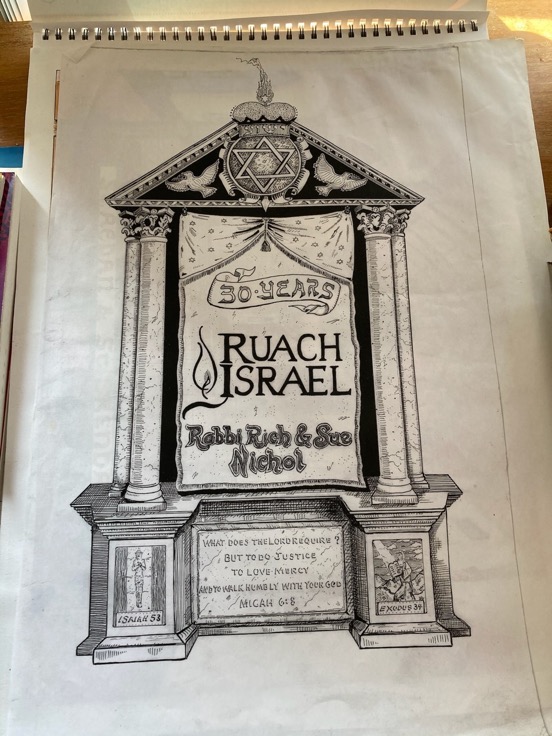 30·YEARS
RUACH
ISRAEL
Rabbi Rich & Sue
Nichol
WHAT DOES THE LORD REQUIRE?
BUT TO DO JUSTICE
TO LOVE MERCY
AND TO WALK HUMBLY WITH YOUR GOD
MICAH 6:8
ISAIAH 53
EXODUS 34